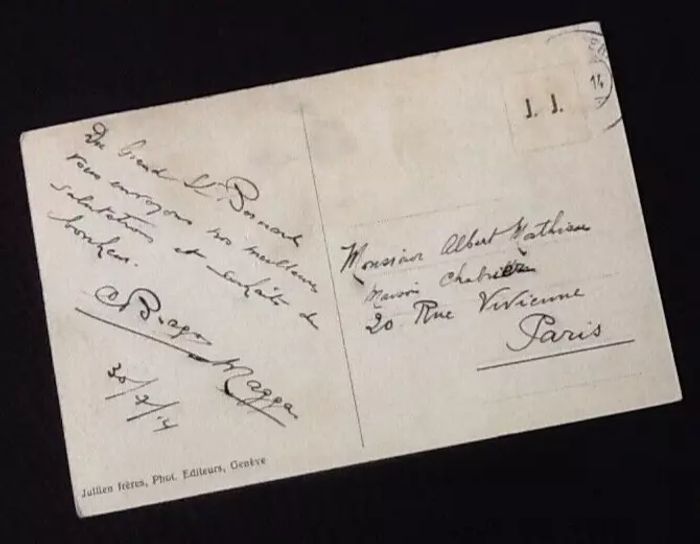 Du Grand St Bernard
vous envoyons nos meilleures
salutations et souhaits de
bonheur.
30/7/14
Jullien frères, Phot. Editeurs, Genève
14
J. J.
Monsieur Albert Mathieu
Maison Chabrier
20 Rue Vivienne
Paris